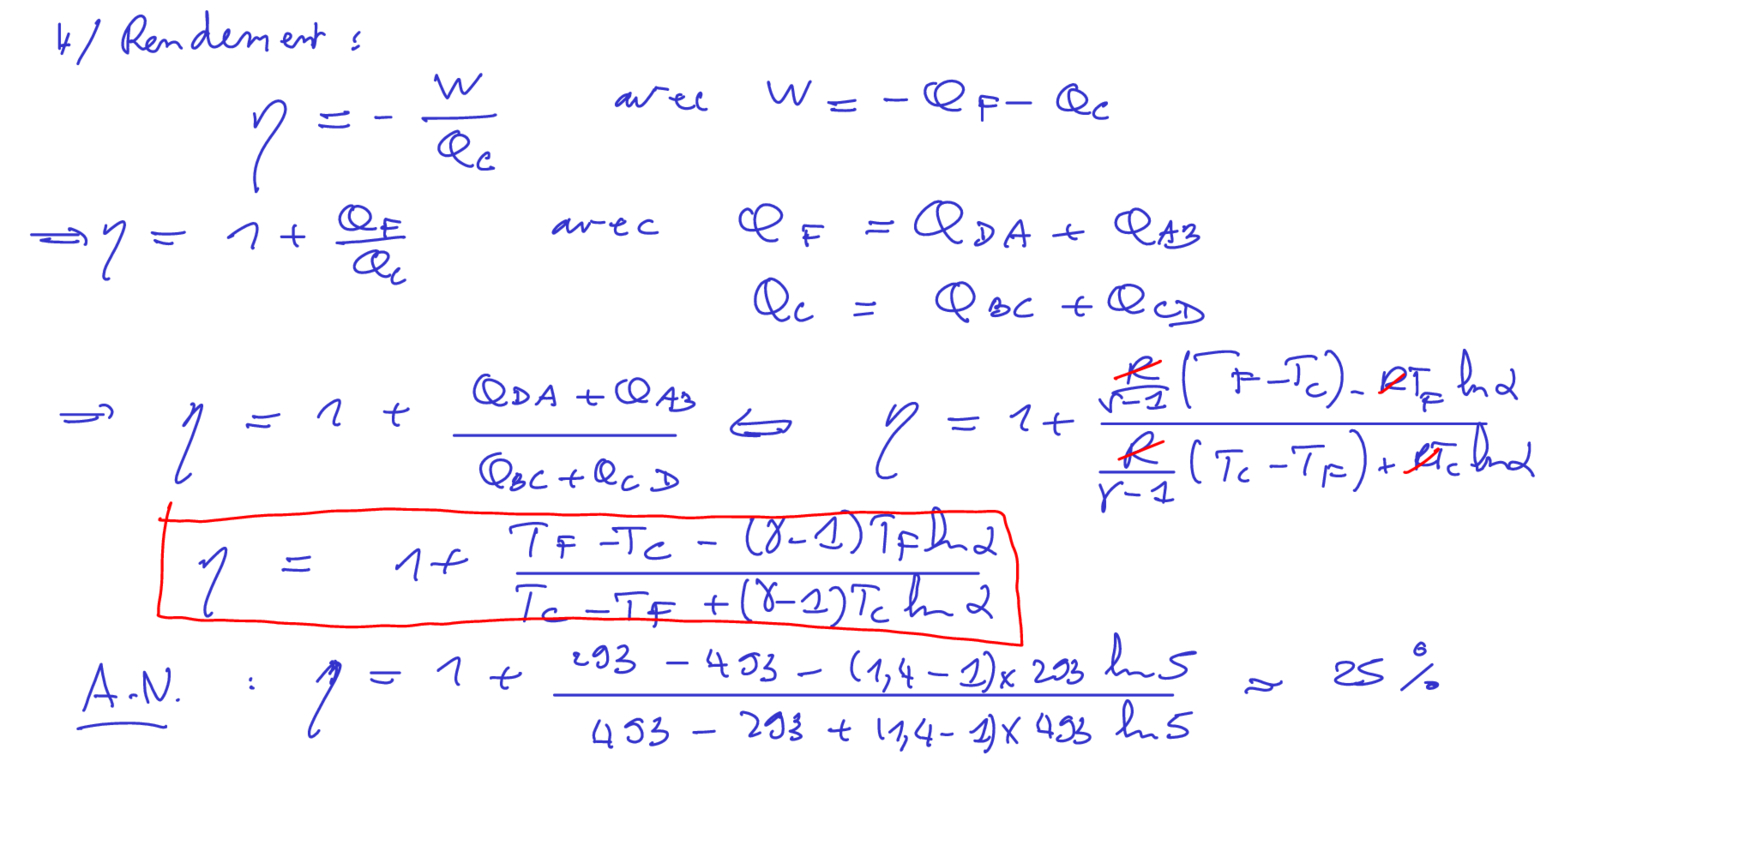 4/ Rendement :
η = - W/Q_C avec W = - Q_F - Q_C
⇒ η = 1 + Q_F/Q_C avec Q_F = Q_DA + Q_AB
Q_C = Q_BC + Q_CD
⇒ η = 1 + (Q_DA + Q_AB)/(Q_BC + Q_CD) ⇔ η = 1 + (R/(γ-1) (T_F - T_C) - RT_F ln α)/(R/(γ-1) (T_C - T_F) + RT_C ln α)
η = 1 + (T_F - T_C - (γ-1)T_F ln α)/(T_C - T_F + (γ-1)T_C ln α)
A.N. : η = 1 + (293 - 493 - (1,4 - 1)× 293 ln 5)/(493 - 293 + (1,4 - 1)× 493 ln 5) ≈ 25 %